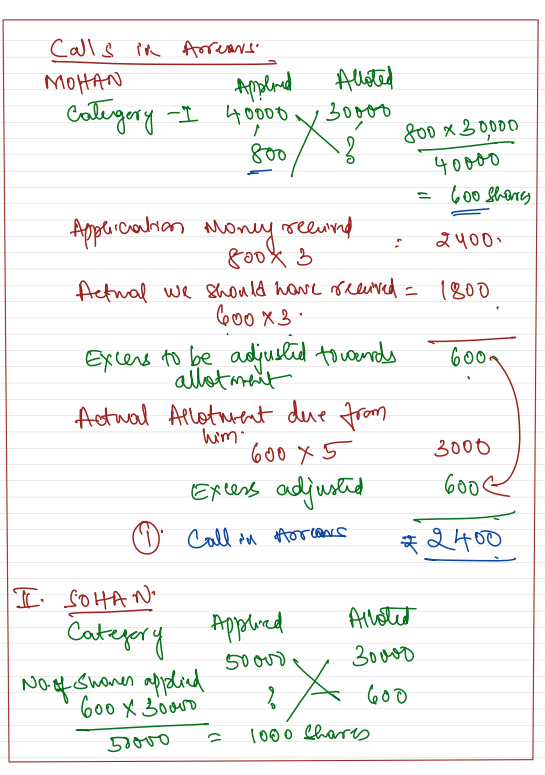 Calls in Arrears.
MOHAN Applied Alloted
Category - I 40000 30000
800 ?
800 × 30,000
40000
= 600 Shares
Application Money received : 2400.
800 × 3
Actual we should have received = 1800
600 × 3.
Excess to be adjusted towards 600
allotment
Actual Allotment due from
him. 600 × 5 3000
Excess adjusted 600
① Call in Arrears ₹ 2400
II. SOHAN.
Category Applied Alloted
50000 30000
No. of Shares applied ? 600
600 × 30000
50000 = 1000 Shares